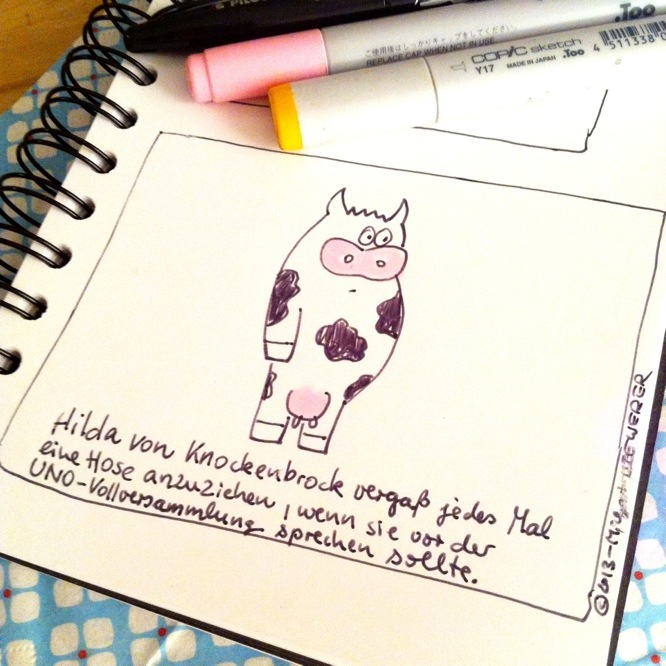 PILOT
ご使用後はしっかりキャップをしてください。
REPLACE CAP WHEN NOT IN USE
.Too
COPIC sketch
Y17 MADE IN JAPAN .Too
4 511338 0
Hilda von Knockenbrock vergaß jedes Mal
eine Hose anzuziehen, wenn sie vor der
UNO-Vollversammlung sprechen sollte.